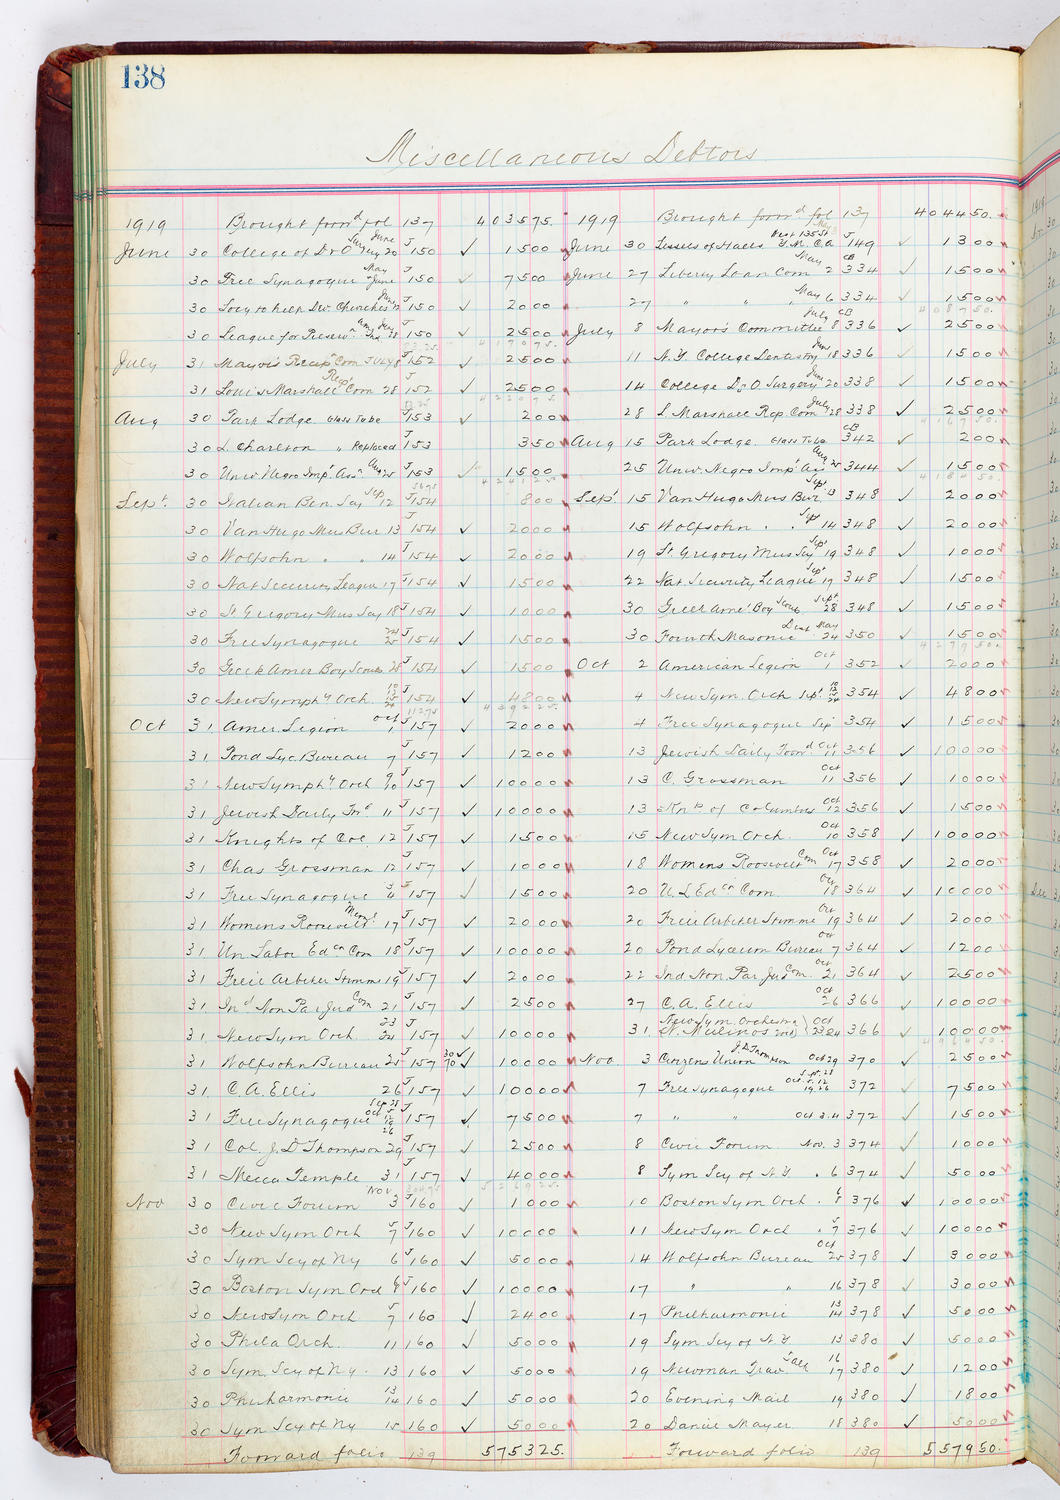 138
Miscellaneous Debtors
1919 Brought forwd fol 137 403575.
June 30 College of D & O Surgery June 20 J 150 ✓ 1500
30 Free Synagogue May June J 150 ✓ 7500
30 Socy to help Dev. Churches June J 150 ✓ 2000
30 League for Preserv. Ind June 28 J 150 ✓ 2500
417075.
July 31 Mayor's Recepn Com July 8 J 152 ✓ 2500
31 Louis Marshall Rept Com 28 J 152 ✓ 2500
422075
Aug 30 Park Lodge Glass Tube J 153 ✓ 200
30 L. Charlton " Replaced J 153 350
30 Univ Negro Imp' Assn Aug 25 J 153 ✓ 1500
424125
Sept. 30 Italian Ben. Socy Sep 12 J 154 800
30 Van Hugo Mus Bur 13 J 154 ✓ 2000
30 Wolfsohn . . 14 J 154 ✓ 2000
30 Nat Security League 17 J 154 ✓ 1500
30 St Gregory Mus Socy 18 J 154 ✓ 1000
30 Free Synagogue 25 J 154 ✓ 1500
30 Greek Amer Boy Scouts 28 J 154 ✓ 1500
30 New Symphy Orch. J 154 ✓ 4800
439225.
Oct 31 Amer. Legion Oct 1 J 157 ✓ 2000
31 Pond Lyc. Bureau 7 J 157 ✓ 1200
31 New Symphy Orch 9 10 J 157 ✓ 10000
31 Jewish Daily Fwd 11 J 157 ✓ 10000
31 Knights of Col. 12 J 157 ✓ 1500
31 Chas Grossman 12 J 157 ✓ 1000
31 Free Synagogue 3 4 J 157 ✓ 1500
31 Womens Roosevelt Meml 17 J 157 ✓ 2000
31 Un Labor Edcn Com 18 J 157 ✓ 10000
31 Freie Arbeiter Stimme 19 J 157 ✓ 2000
31 Ind Non Par Jud Com 21 J 157 ✓ 2500
31 New Sym Orch. 23 24 J 157 ✓ 10000
31 Wolfsohn Bureau 25 J 157 30 70 ✓ 10000
31 C. A. Ellis 26 J 157 ✓ 10000
31 Free Synagogue Sep 28 Oct 5 12 19 26 J 157 ✓ 7500
31 Col. J. D Thompson 29 J 157 ✓ 2500
31 Mecca Temple 31 J 157 ✓ 4000
526925.
Nov 30 Civic Forum Nov 3 J 160 ✓ 1000
30 New Sym Orch 5 7 J 160 ✓ 10000
30 Sym Scy of Ny 6 J 160 ✓ 5000
30 Boston Sym Orch 6 8 J 160 ✓ 10000
30 New Sym Orch 5 7 160 ✓ 2400
30 Phila Orch. 11 160 ✓ 5000
30 Sym Scy of Ny. 13 160 ✓ 5000
30 Philharmonic 13 14 160 ✓ 5000
30 Sym Scy of Ny 15 160 ✓ 5000
Forward folio 139 575325.
1919 Brought forwd fol 137 404450.
June 30 Lessees of Halls West 135 St Y.M.C.A. J 149 ✓ 1300
June 27 Liberty Loan Com May 2 CB 334 ✓ 1500
27 " " " May 6 334 ✓ 1500
408750.
July 8 Mayors Committee July 8 CB 336 ✓ 2500
11 N.Y. College Dentistry June 18 336 ✓ 1500
14 College D & O. Surgery June 20 338 ✓ 1500
28 L Marshall Rep. Com July 28 338 ✓ 2500
416750.
Aug 15 Park Lodge. Glass Tube CB 342 ✓ 200
25 Univ. Negro Imp' Assn Aug 25 344 ✓ 1500
418450.
Sept 15 Van Hugo Mus Bur. Sept 13 348 ✓ 2000
15 Wolfsohn . . Sept 14 348 ✓ 2000
19 St Gregory Mus Scy Sept 19 348 ✓ 1000
22 Nat Security League Sept 19 348 ✓ 1500
30 Greek Amer. Boy Scouts Sept. 28 348 ✓ 1500
30 Fourth Masonic Dist May 24 350 ✓ 1500
427950.
Oct 2 American Legion Oct 1 352 ✓ 2000
4 New Sym. Orch Sept. 354 ✓ 4800
4 Free Synagogue Sep 354 ✓ 1500
13 Jewish Daily Forwd Oct 11 356 ✓ 10000
13 C. Grossman Oct 11 356 ✓ 1000
13 Knts of Columbus Oct 12 356 ✓ 1500
15 New Sym Orch. Oct 10 358 ✓ 10000
18 Womens Roosevelt Com Oct 17 358 ✓ 2000
20 U. L Edcn Com Oct 18 364 ✓ 10000
20 Freie Arbeter Stimme Oct 19 364 ✓ 2000
20 Pond Lyceum Bureau Oct 7 364 ✓ 1200
22 Ind Non Par. Jud Com. Oct 21 364 ✓ 2500
27 C. A. Ellis Oct 26 366 ✓ 10000
31 New Sym. Orchestra Oct 23 24 366 ✓ 10000
496450.
Nov. 3 Citizens Union J. D. Thompson Oct 29 370 ✓ 2500
7 Free Synagogue Sept. 28 Oct. 5. 12 19 26 372 ✓ 7500
7 " " Oct 3.4 372 ✓ 1500
8 Civic Forum Nov. 3 374 ✓ 1000
8 Sym Scy of N.Y . 6 374 ✓ 5000
10 Boston Sym Orch . 6 8 376 ✓ 10000
11 New Sym Orch . 5 7 376 ✓ 10000
14 Wolfsohn Bureau Oct 25 378 ✓ 3000
17 " " 16 378 ✓ 3000
17 Philharmonic 13 14 378 ✓ 5000
19 Sym Scy of N.Y 13 380 ✓ 5000
19 Newman Trav. Talk 16 17 380 ✓ 1200
20 Evening Mail 19 380 ✓ 1800
20 Daniel Mayer 18 380 ✓ 5000
Forward folio 139 557950.